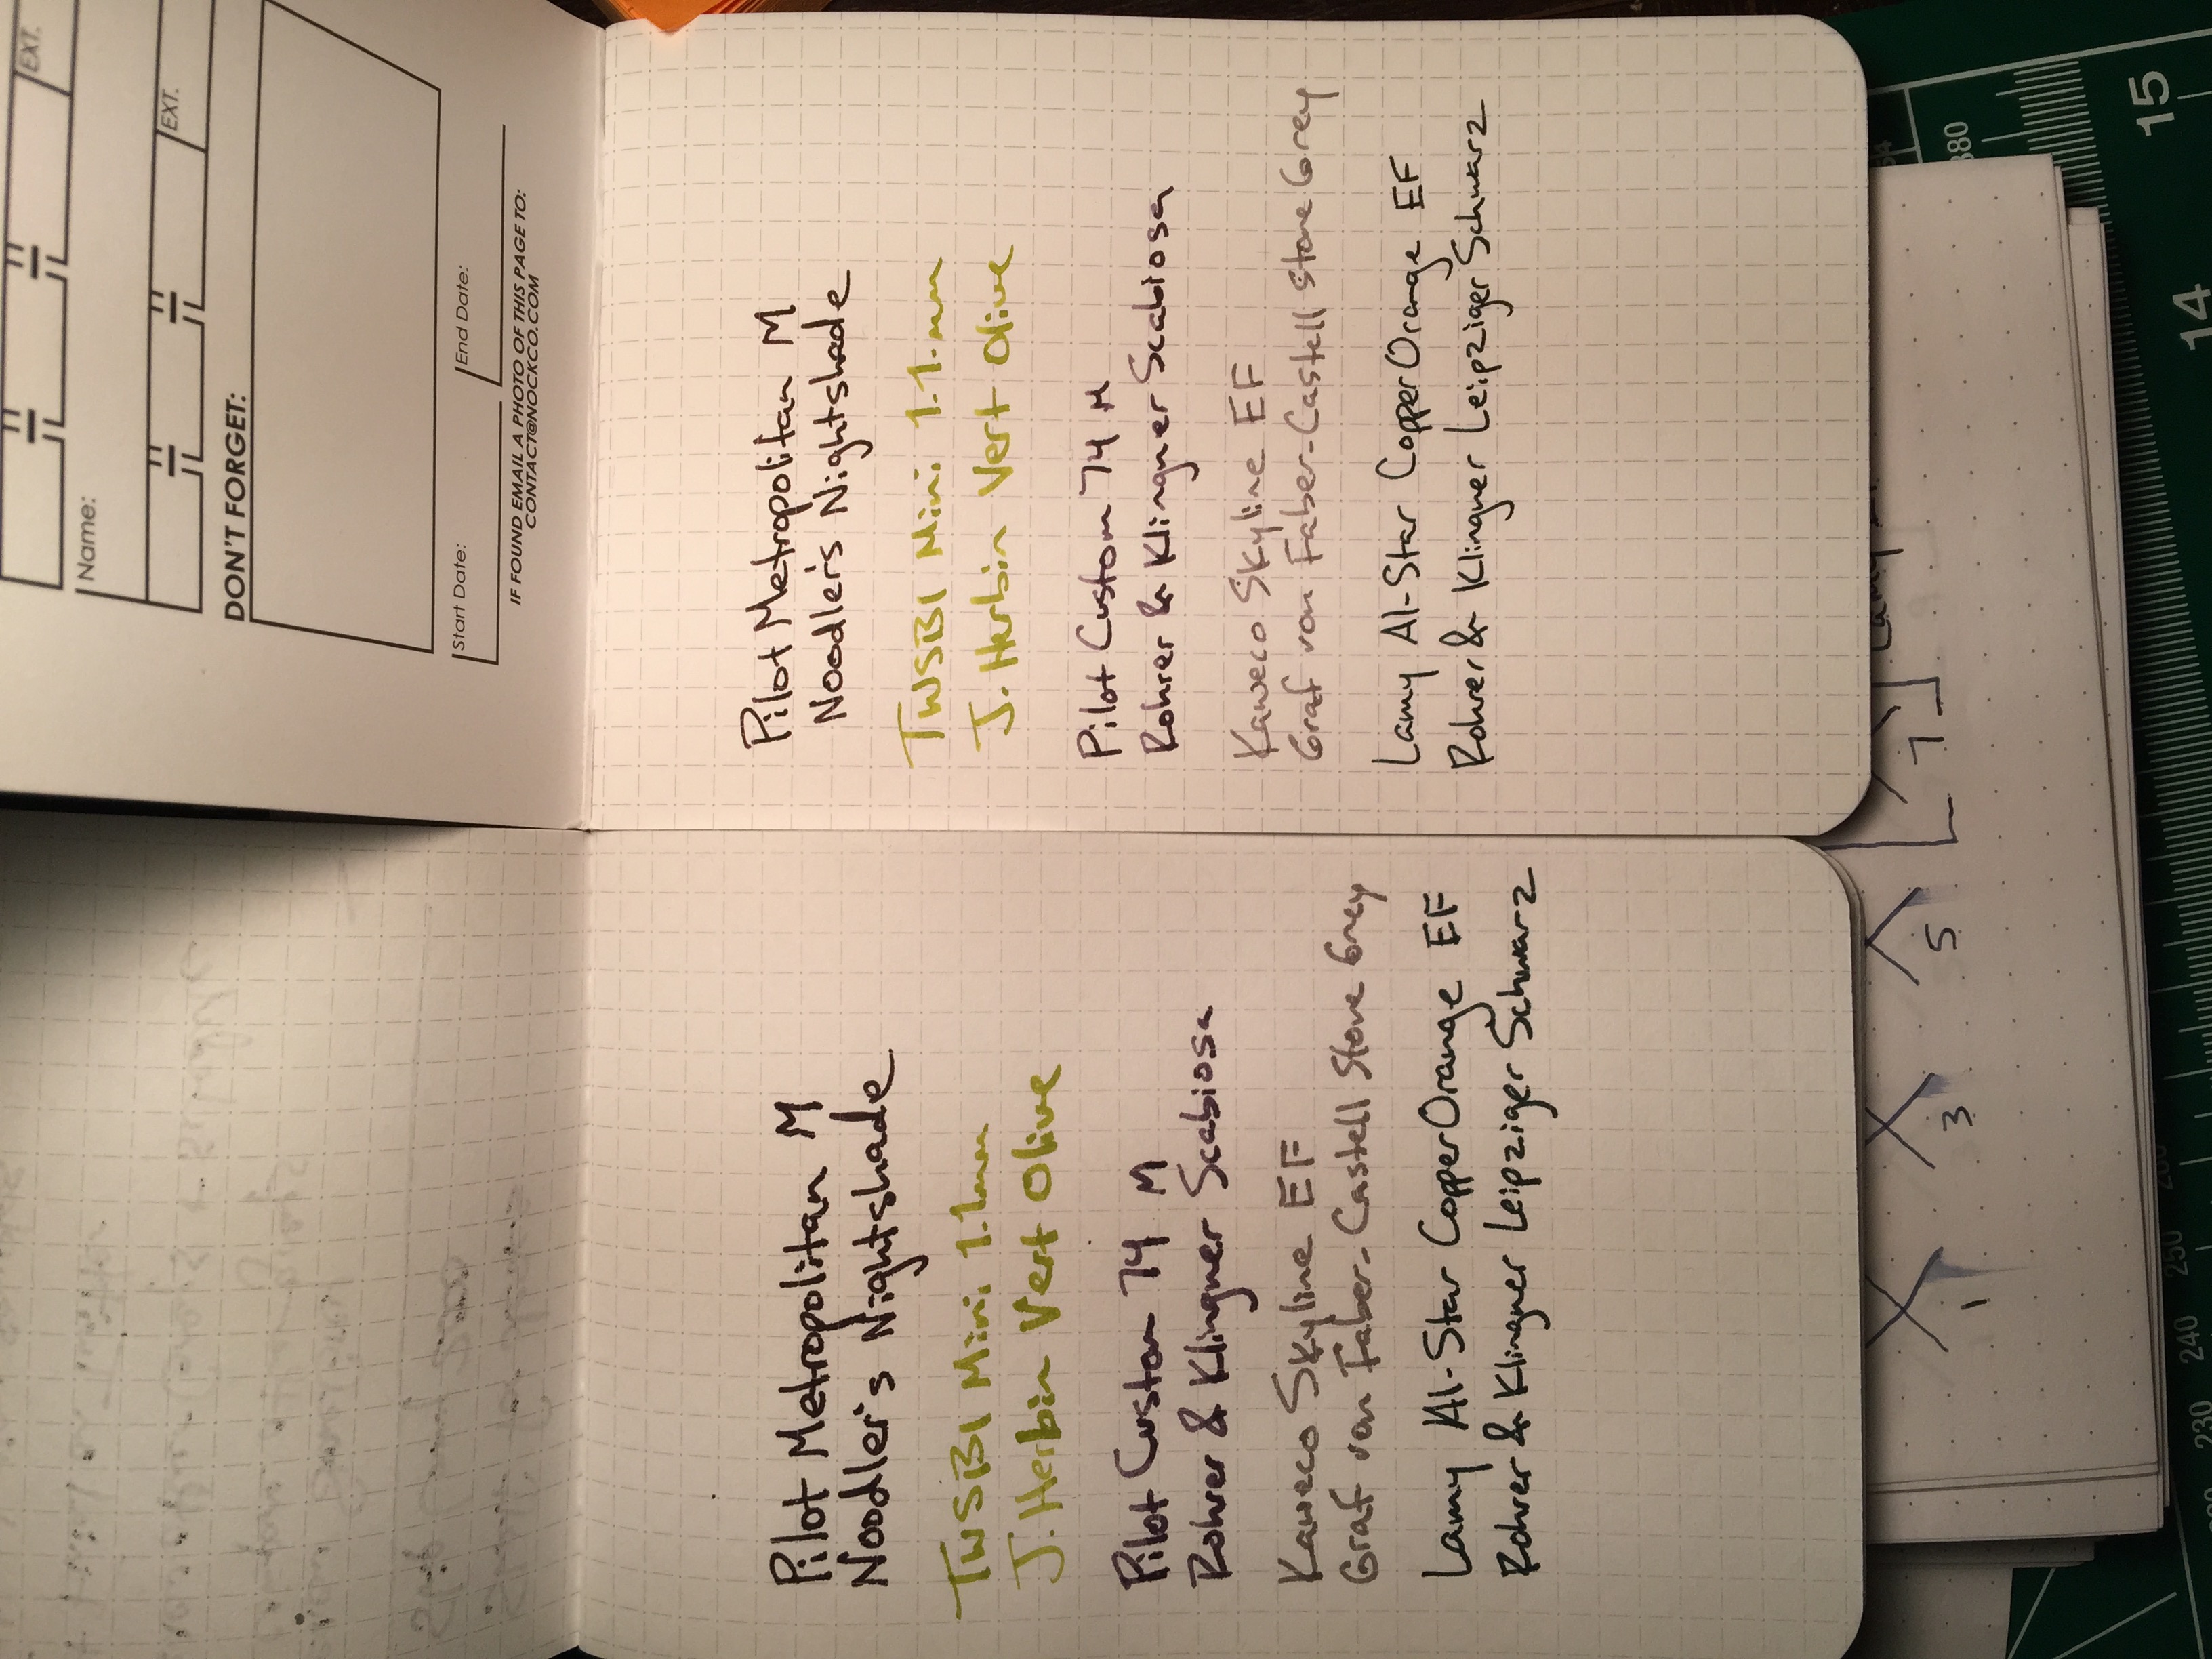 EXT.
Name:
EXT.
DON'T FORGET:
Start Date:
End Date:
IF FOUND EMAIL A PHOTO OF THIS PAGE TO:
CONTACT@NOCKCO.COM
Pilot Metropolitan M
Noodler's Nightshade
TWSBI Mini 1.1mm
J. Herbin Vert Olive
Pilot Custom 74 M
Rohrer & Klingner Scabiosa
Kaweco Skyline EF
Graf von Faber-Castell Stone Grey
Lamy Al-Star Copper Orange EF
Rohrer & Klingner Leipziger Schwarz
Pilot Metropolitan M
Noodler's Nightshade
TWSBI Mini 1.1mm
J. Herbin Vert Olive
Pilot Custom 74 M
Rohrer & Klingner Scabiosa
Kaweco Skyline EF
Graf von Faber-Castell Stone Grey
Lamy Al-Star Copper Orange EF
Rohrer & Klingner Leipziger Schwarz
1 3 5 7
Lamy
230 240 250
15
14